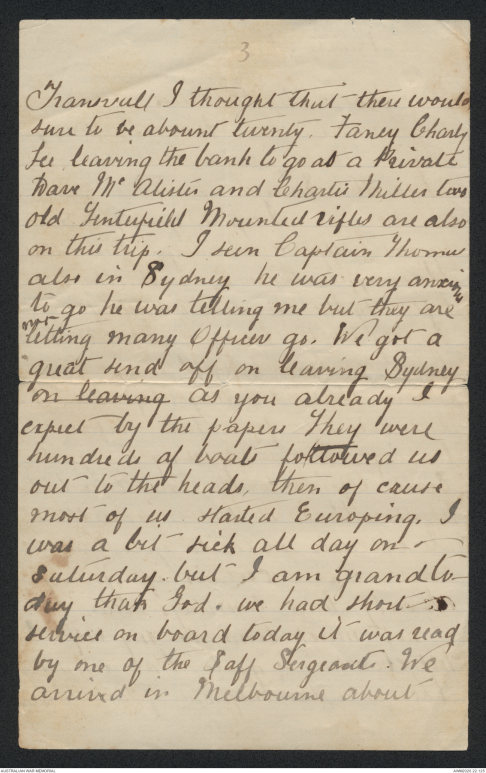 3
Transvall I thought that there would
sure to be abount twenty. Fancy Charly
Lee leaving the bank to go as a Private
Dave Mc Alister and Charlie Miller two
old Tenterfield Mounted rifles are also
on this trip. I seen Captain Thomas
also in Sydney he was very anxious
to go he was telling me but they are
not letting many Officer go. We got a
great send off on leaving Sydney
on leaving as you already I
expect by the papers They were
hundreds of boats followed us
out to the heads, then of cause
most of us started Europing. I
was a bit sick all day on
Saturday but I am grand to-
day thank God. we had short
service on board today it was read
by one of the Saff Sergeants. We
arrived in Melbourne about
AUSTRALIAN WAR MEMORIAL